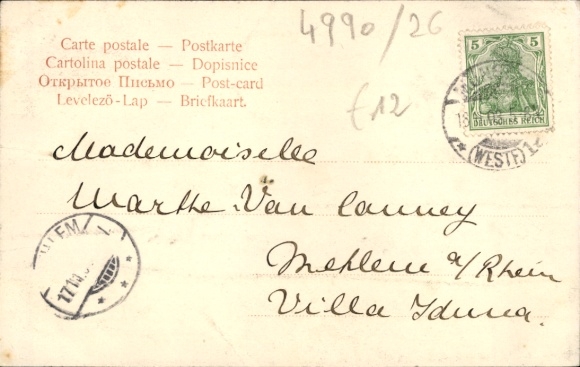 4990/26
£12
Carte postale — Postkarte
Cartolina postale — Dopisnice
Открытое Письмо — Post-card
Levelező-Lap — Briefkaart.
5 5
DEUTSCHES REICH
(WESTF) 1
Mademoiselle
Marthe Van Canney
Mehlem a/Rhein
Villa Iduna.
HLEM
17.10.